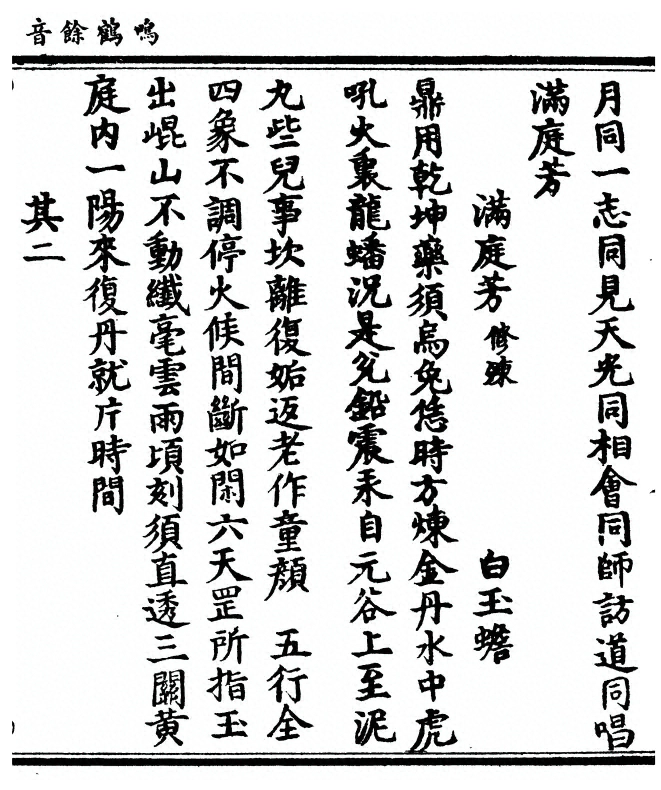 鳴鶴餘音
月同一志同見天光同相會同師訪道同唱
滿庭芳
滿庭芳 修煉 白玉蟾
鼎用乾坤藥須烏兔恁時方煉金丹水中虎
吼火裏龍蟠況是兌鉛震汞自元谷上至泥
丸些兒事坎離復姤返老作童顔 五行全
四象不調停火候間斷如閑六天罡所指玉
出崐山不動纖毫雲雨頃刻須直透三關黄
庭内一陽來復丹就片時間
其二